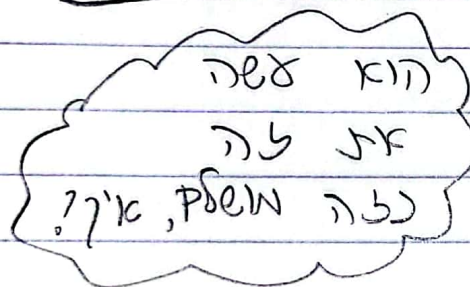 הוא עשה
את זה
כזה מושלם, איך?